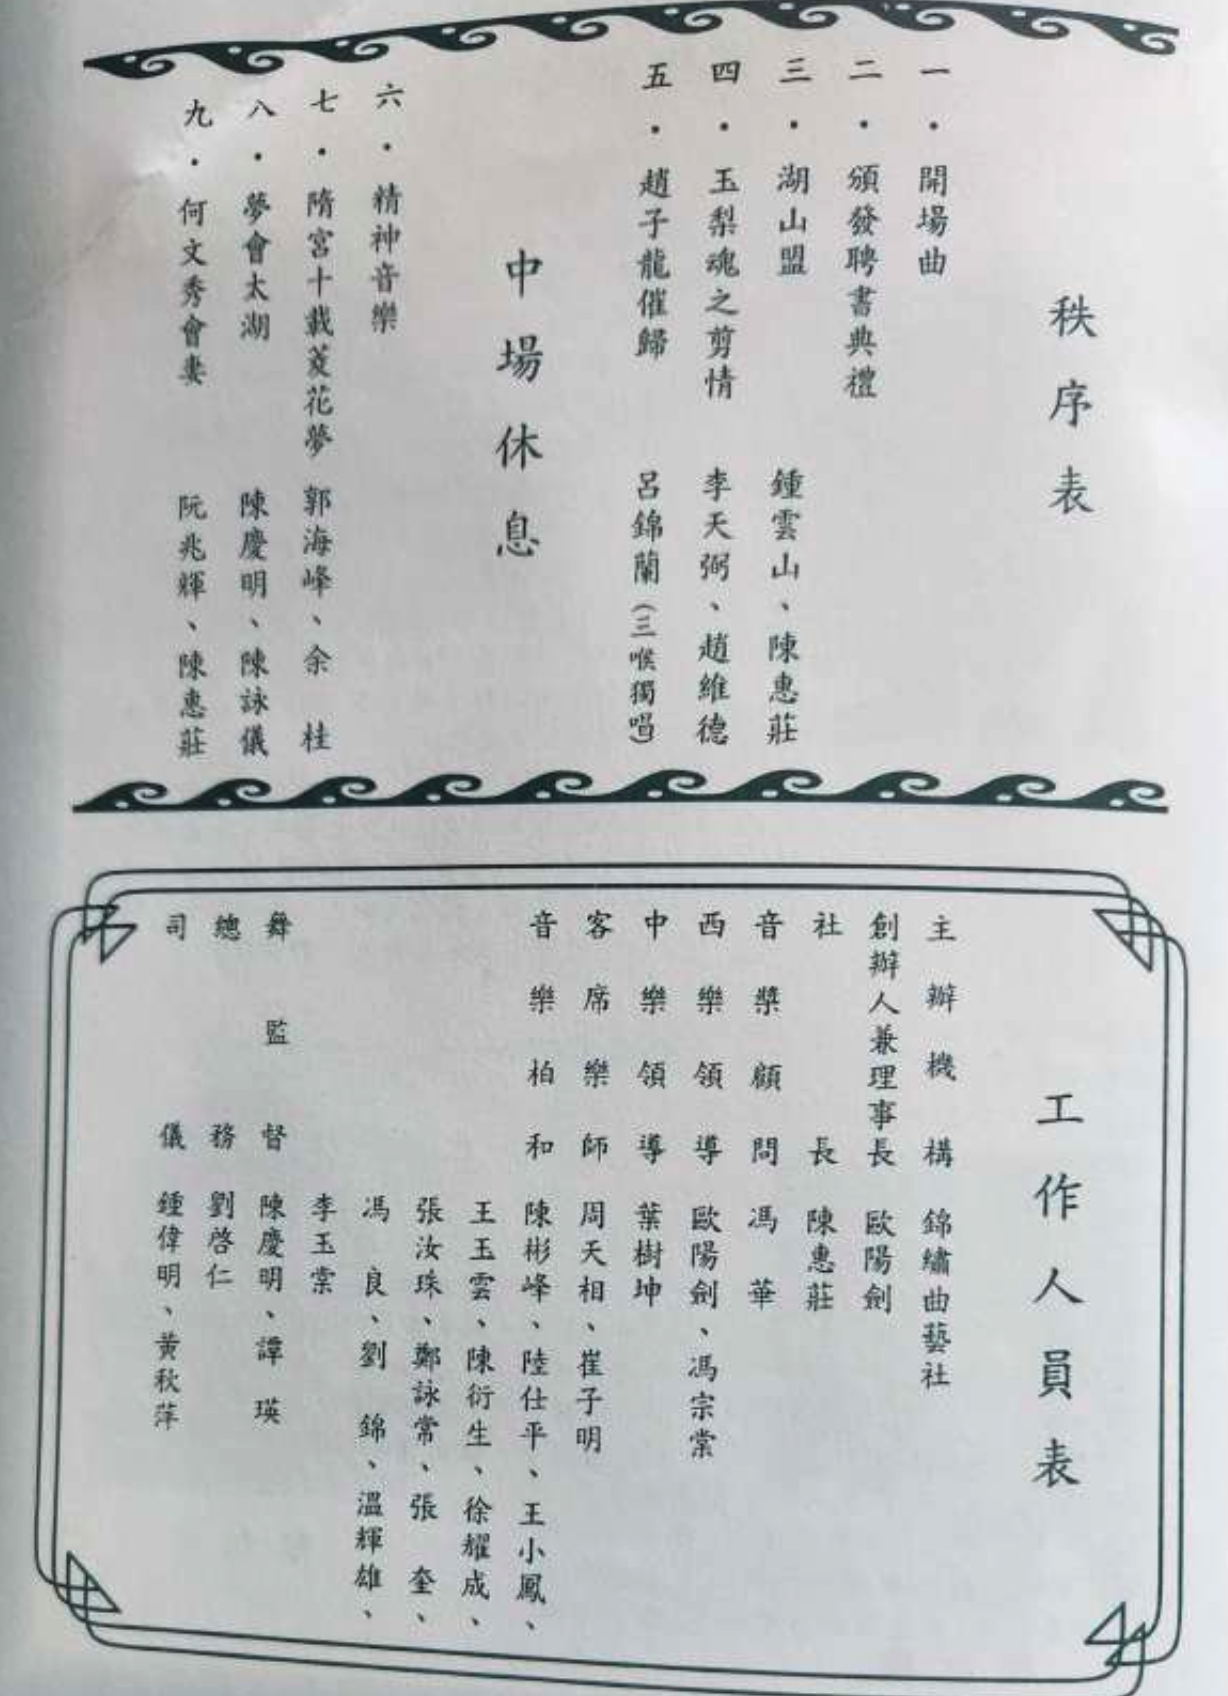 秩序表
一．開場曲
二．頒發聘書典禮
三．湖山盟 鍾雲山、陳惠莊
四．玉梨魂之剪情 李天弼、趙維德
五．趙子龍催歸 呂錦蘭(三喉獨唱)
中場休息
六．精神音樂
七．隋宮十載菱花夢 郭海峰、余桂
八．夢會太湖 陳慶明、陳詠儀
九．何文秀會妻 阮兆輝、陳惠莊
工作人員表
主辦機構 錦繡曲藝社
創辦人兼理事長 歐陽劍
社長 陳惠莊
音樂顧問 馮華
西樂領導 歐陽劍、馮宗棠
中樂領導 葉樹坤
客席樂師 周天相、崔子明
音樂柏和 陳彬峰、陸仕平、王小鳳、
王玉雲、陳衍生、徐耀成、
張汝珠、鄭詠常、張奎、
馮良、劉錦、溫輝雄、
李玉棠
舞監督 陳慶明、譚瑛
總務 劉啓仁
司儀 鍾偉明、黃秋萍